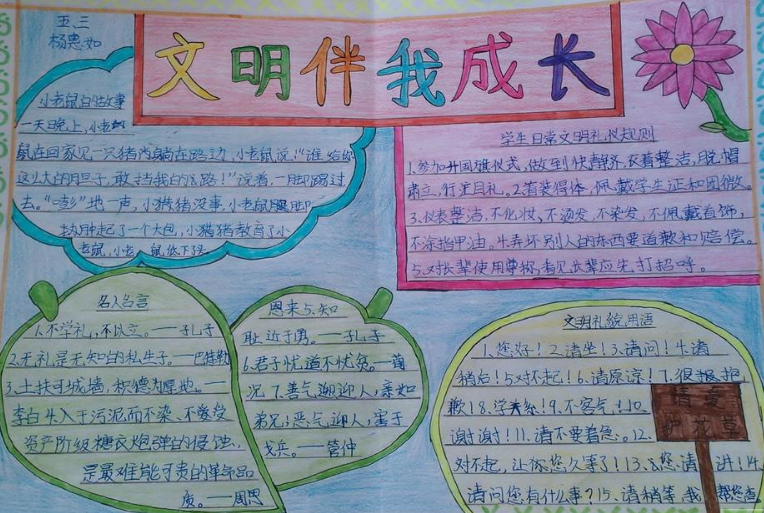 五.三
杨思如
文明伴我成长
小老鼠白的故事
一天晚上,小老鼠
鼠在回家见一只猪肉躺在路边,小老鼠说:"谁给你
这么大的胆子,敢挡我的路!"说着,一脚踢过
去。"嘭"地一声,小猪没事,小老鼠
肿起了一个大包,小猪猪教育了小
老鼠,小老鼠低下头
学生日常文明礼仪规则
1.参加升国旗仪式,做到快静齐,衣着整洁,脱帽
肃立,行注目礼。2.着装得体,佩戴学生证和团徽。
3.仪表整洁,不化妆,不烫发,不染发,不佩戴首饰,
不涂指甲油。4.弄坏别人的东西要道歉和赔偿。
5.对长辈使用尊称,看见长辈应先打招呼。
名人名言
1.不学礼,不以立。——孔子
2.无礼是无知的私生子。——巴特勒
3.土扶可城墙,积德为厚地。——
李白4.入于污泥而不染、不受
资产阶级糖衣炮弹的侵蚀,
是最难能可贵的革命品
质。——周恩
恩来5.知
耻近乎勇。——孔子
6.君子忧道不忧贫。——
况7.善气迎人,亲如
弟兄;恶气迎人,害于
戈兵。——管仲
文明礼貌用语
1.您好!2.请坐!3.请问!4.请
稍后!5.对不起!6.请原谅!7.很报抱
歉!8.学!9.不客气!10.
谢谢!11.请不要着急。12.
对不起,让你您久等了!13.您请讲!14.
请问您有什么事?15.请稍等,我帮您查。
请爱
护花草